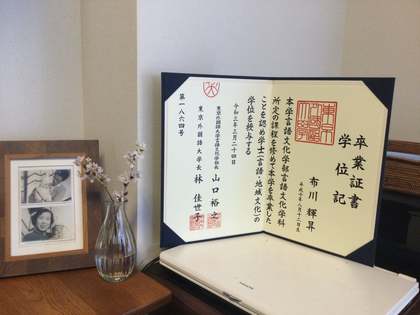 卒業証書
学位記
布川 輝昇
本学言語文化学部言語文化学科
所定の課程を修めて本学を卒業した
ことを認め学士(言語・地域文化)の
学位を授与する
令和三年三月二十四日
東京外国語大学言語文化学部長 山口裕之
東京外国語大学長 林 佳世子
第一八六四号